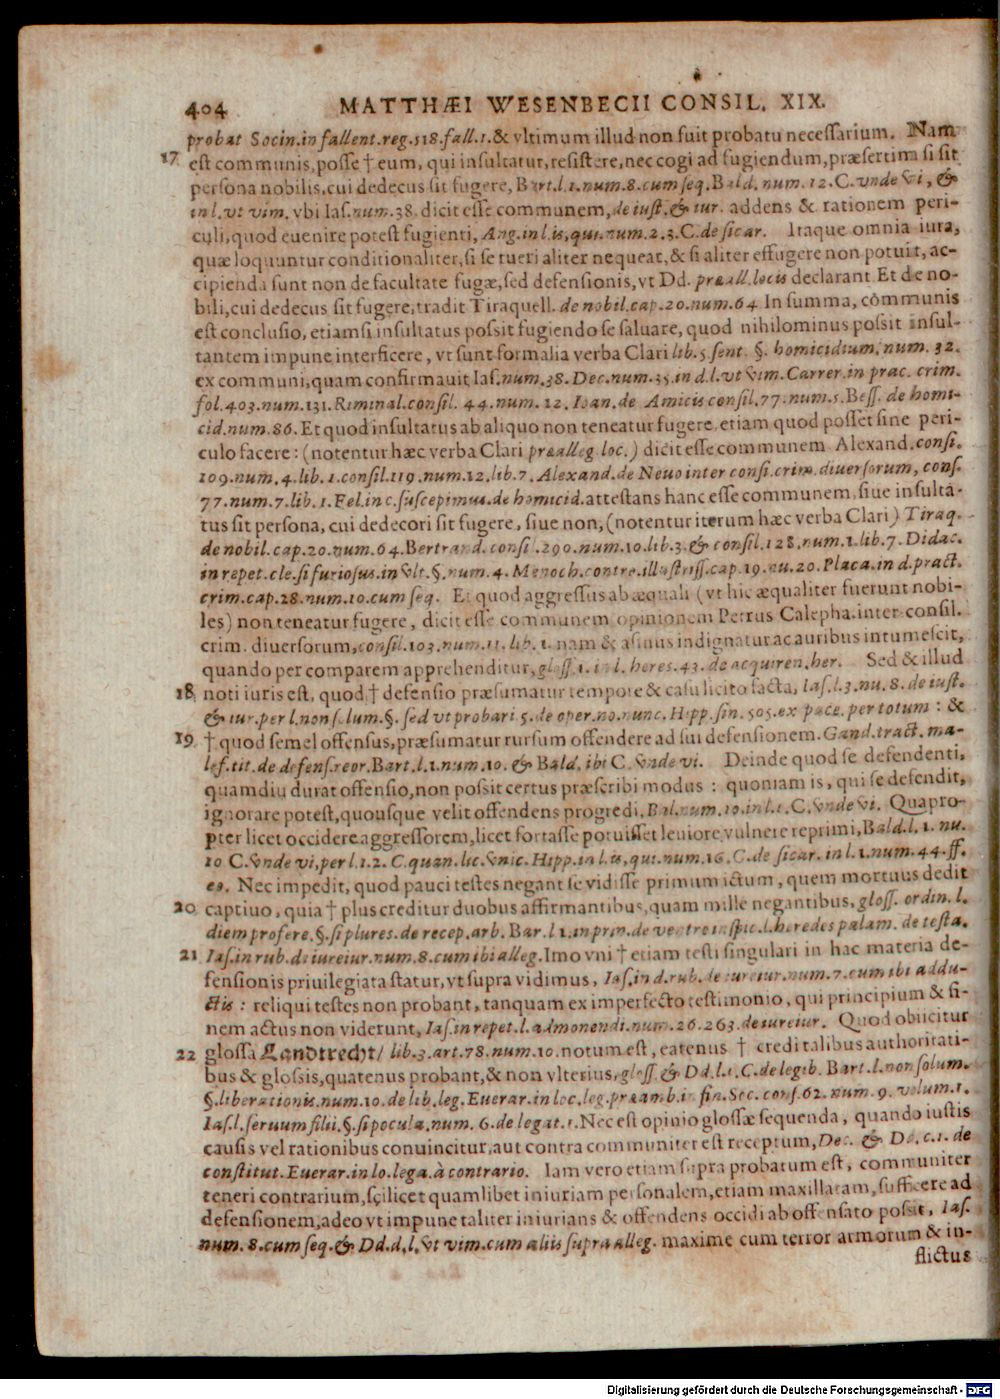 404 MATTHÆI WESENBECII CONSIL. XIX.
probat Socin. in fallent. reg. 518. fall. 1. & vltimum illud non fuit probatu necessarium. Nam
17 est communis, posse † eum, qui insultatur, resistere, nec cogi ad fugiendum, præsertim si sit
persona nobilis, cui dedecus sit fugere, Bart. l. 1. num. 8. cum seq. Bald. num. 12. C. vnde vi, &
in l. vt vim. vbi Ias. num. 38. dicit esse communem, de iust. & iur. addens & rationem peri-
culi, quod euenire potest fugienti, Ang. in l. is, qui. num. 2. 3. C. de sicar. Itaque omnia iura,
quæ loquuntur conditionaliter, si se tueri aliter nequeat, & si aliter effugere non potuit, ac-
cipienda sunt non de facultate fugæ, sed defensionis, vt Dd. præall. locis declarant. Et de no-
bili, cui dedecus sit fugere, tradit Tiraquell. de nobil. cap. 20. num. 64. In summa, cōmmunis
est conclusio, etiamsi insultatus possit fugiendo se saluare, quod nihilominus possit insul-
tantem impune interficere, vt sunt formalia verba Clari lib. 5. sent. §. homicidium, num. 32.
ex communi, quam confirmauit Ias. num. 38. Dec. num. 35. in d. l. vt vim. Carrer. in prac. crim.
fol. 403. num. 131. Riminal. consil. 44. num. 12. Ioan. de Amicis consil. 77. num. 5. Bess. de homi-
cid. num. 86. Et quod insultatus ab aliquo non teneatur fugere, etiam quod posset sine peri-
culo facere: (notentur hæc verba Clari præalleg. loc.) dicit esse communem Alexand. consi.
109. num. 4. lib. 1. consil. 119. num. 12. lib. 7. Alexand. de Neuo inter consi. crim. diuersorum, cons.
77. num. 7. lib. 1. Fel. in c. suscepimus. de homicid. attestans hanc esse communem, siue insulta-
tus sit persona, cui dedecori sit fugere, siue non, (notentur iterum hæc verba Clari) Tiraq.
de nobil. cap. 20. num. 64. Bertrand. consil. 290. num. 10. lib. 3. & consil. 128. num. 1. lib. 7. Didac.
in repet. cle. si furiosus. in vlt. §. num. 4. Menoch. contro. illustriss. cap. 19. nu. 20. Placa. in d. pract.
crim. cap. 28. num. 10. cum seq. Et quod aggressus ab æquali (vt hic æqualiter fuerunt nobi-
les) non teneatur fugere, dicit esse communem opinionem Petrus Calepha. inter consil.
crim. diuersorum, consil. 103. num. 11. lib. 1. nam & asinus indignatur ac auribus intumescit,
quando per comparem apprehenditur, gloss. 1. in l. heres. 43. de acquiren. her. Sed & illud
18 noti iuris est, quod † defensio præsumatur tempore & casu licito facta, Ias. l. 3. nu. 8. de iust.
& iur. per l. non solum. §. sed vt probari 5. de oper. no. nunc. Hipp. sin. 505. ex pace. per totum: &
19 † quod semel offensus, præsumatur rursum offendere ad sui defensionem. Gand. tract. ma-
lef. tit. de defens. reor. Bart. l. 1. num. 10. & Bald. ibi C. vnde vi. Deinde quod se defendenti,
quamdiu durat offensio, non possit certus præscribi modus: quoniam is, qui se defendit,
ignorare potest, quousque velit offendens progredi, Bal. num. 10. in l. 1. C. vnde vi. Quapro-
pter licet occidere aggressorem, licet fortasse potuisset leuiore vulnere reprimi, Bald. l. 1. nu.
10 C. vnde vi, per l. 1. 2. C. quan. lic. vnic. Hipp. in l. is, qui. num. 16. C. de sicar. in l. 1. num. 44. ff.
eo. Nec impedit, quod pauci testes negant se vidisse primum ictum, quem mortuus dedit
20 captiuo, quia † plus creditur duobus affirmantibus, quam mille negantibus, gloss. ordin. l.
diem profere. §. si plures. de recep. arb. Bar. l. 1. in prin. de ventre inspic. l. heredes palam. de testa.
21 Ias. in rub. de iureiur. num. 8. cum ibi alleg. Imo vni † etiam testi singulari in hac materia de-
fensionis priuilegiata statur, vt supra vidimus, Ias. in d. rub. de iureiur. num. 7. cum ibi addu-
ctis: reliqui testes non probant, tanquam ex imperfecto testimonio, qui principium & fi-
nem actus non viderunt, Ias. in repet. l. admonendi. num. 26. 263. de iureiur. Quod obiicitur
22 glossa Landtrecht/ lib. 3. art. 78. num. 10. notum est, eatenus † credi talibus authoritati-
bus & glossis, quatenus probant, & non vlterius, gloss. & Dd. l. 1. C. de legib. Bart. l. non solum.
§. liberationis. num. 10. de lib. leg. Euerar. in loc. leg. præamb. in fin. Soc. cons. 62. num. 9. volum. 1.
Ias. l. seruum filii. §. si pocula, num. 6. de legat. 1. Nec est opinio glossæ sequenda, quando iustis
causis vel rationibus conuincitur, aut contra communiter est receptum, Dec. & Dd. c. 1. de
constitut. Euerar. in lo. lega. à contrario. Iam vero etiam supra probatum est, communiter
teneri contrarium, scilicet quamlibet iniuriam personalem, etiam maxillatam, sufficere ad
defensionem, adeo vt impune taliter iniurians & offendens occidi ab offensato possit, Ias.
num. 8. cum seq. & Dd. d. l. vt vim. cum aliis supra alleg. maxime cum terror armorum & in-
flictus
Digitalisierung gefördert durch die Deutsche Forschungsgemeinschaft - DFG